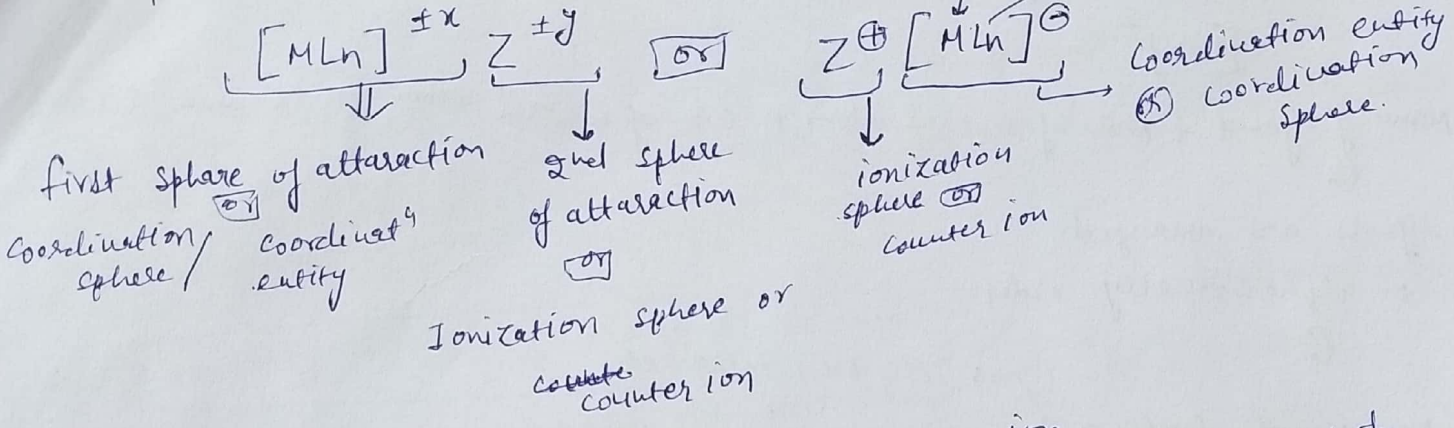 [MLn]^±x Z^±y or Z^⊕ [MLn]^⊖
Coordination entity
or coordination
sphere.
first sphare of attaraction
or
Coordination sphere / coordinatⁿ entity
2nd sphere
of attaraction
or
Ionization sphere or
counter ion
ionization
sphere or
counter ion